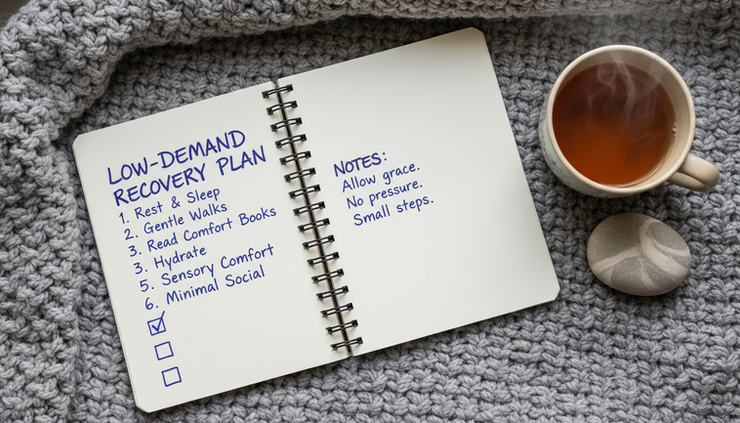 LOW-DEMAND
RECOVERY PLAN
1. Rest & Sleep
2. Gentle Walks
3. Read Comfort Books
3. Hydrate
5. Sensory Comfort
6. Minimal Social
NOTES:
Allow grace.
No pressure.
Small steps.